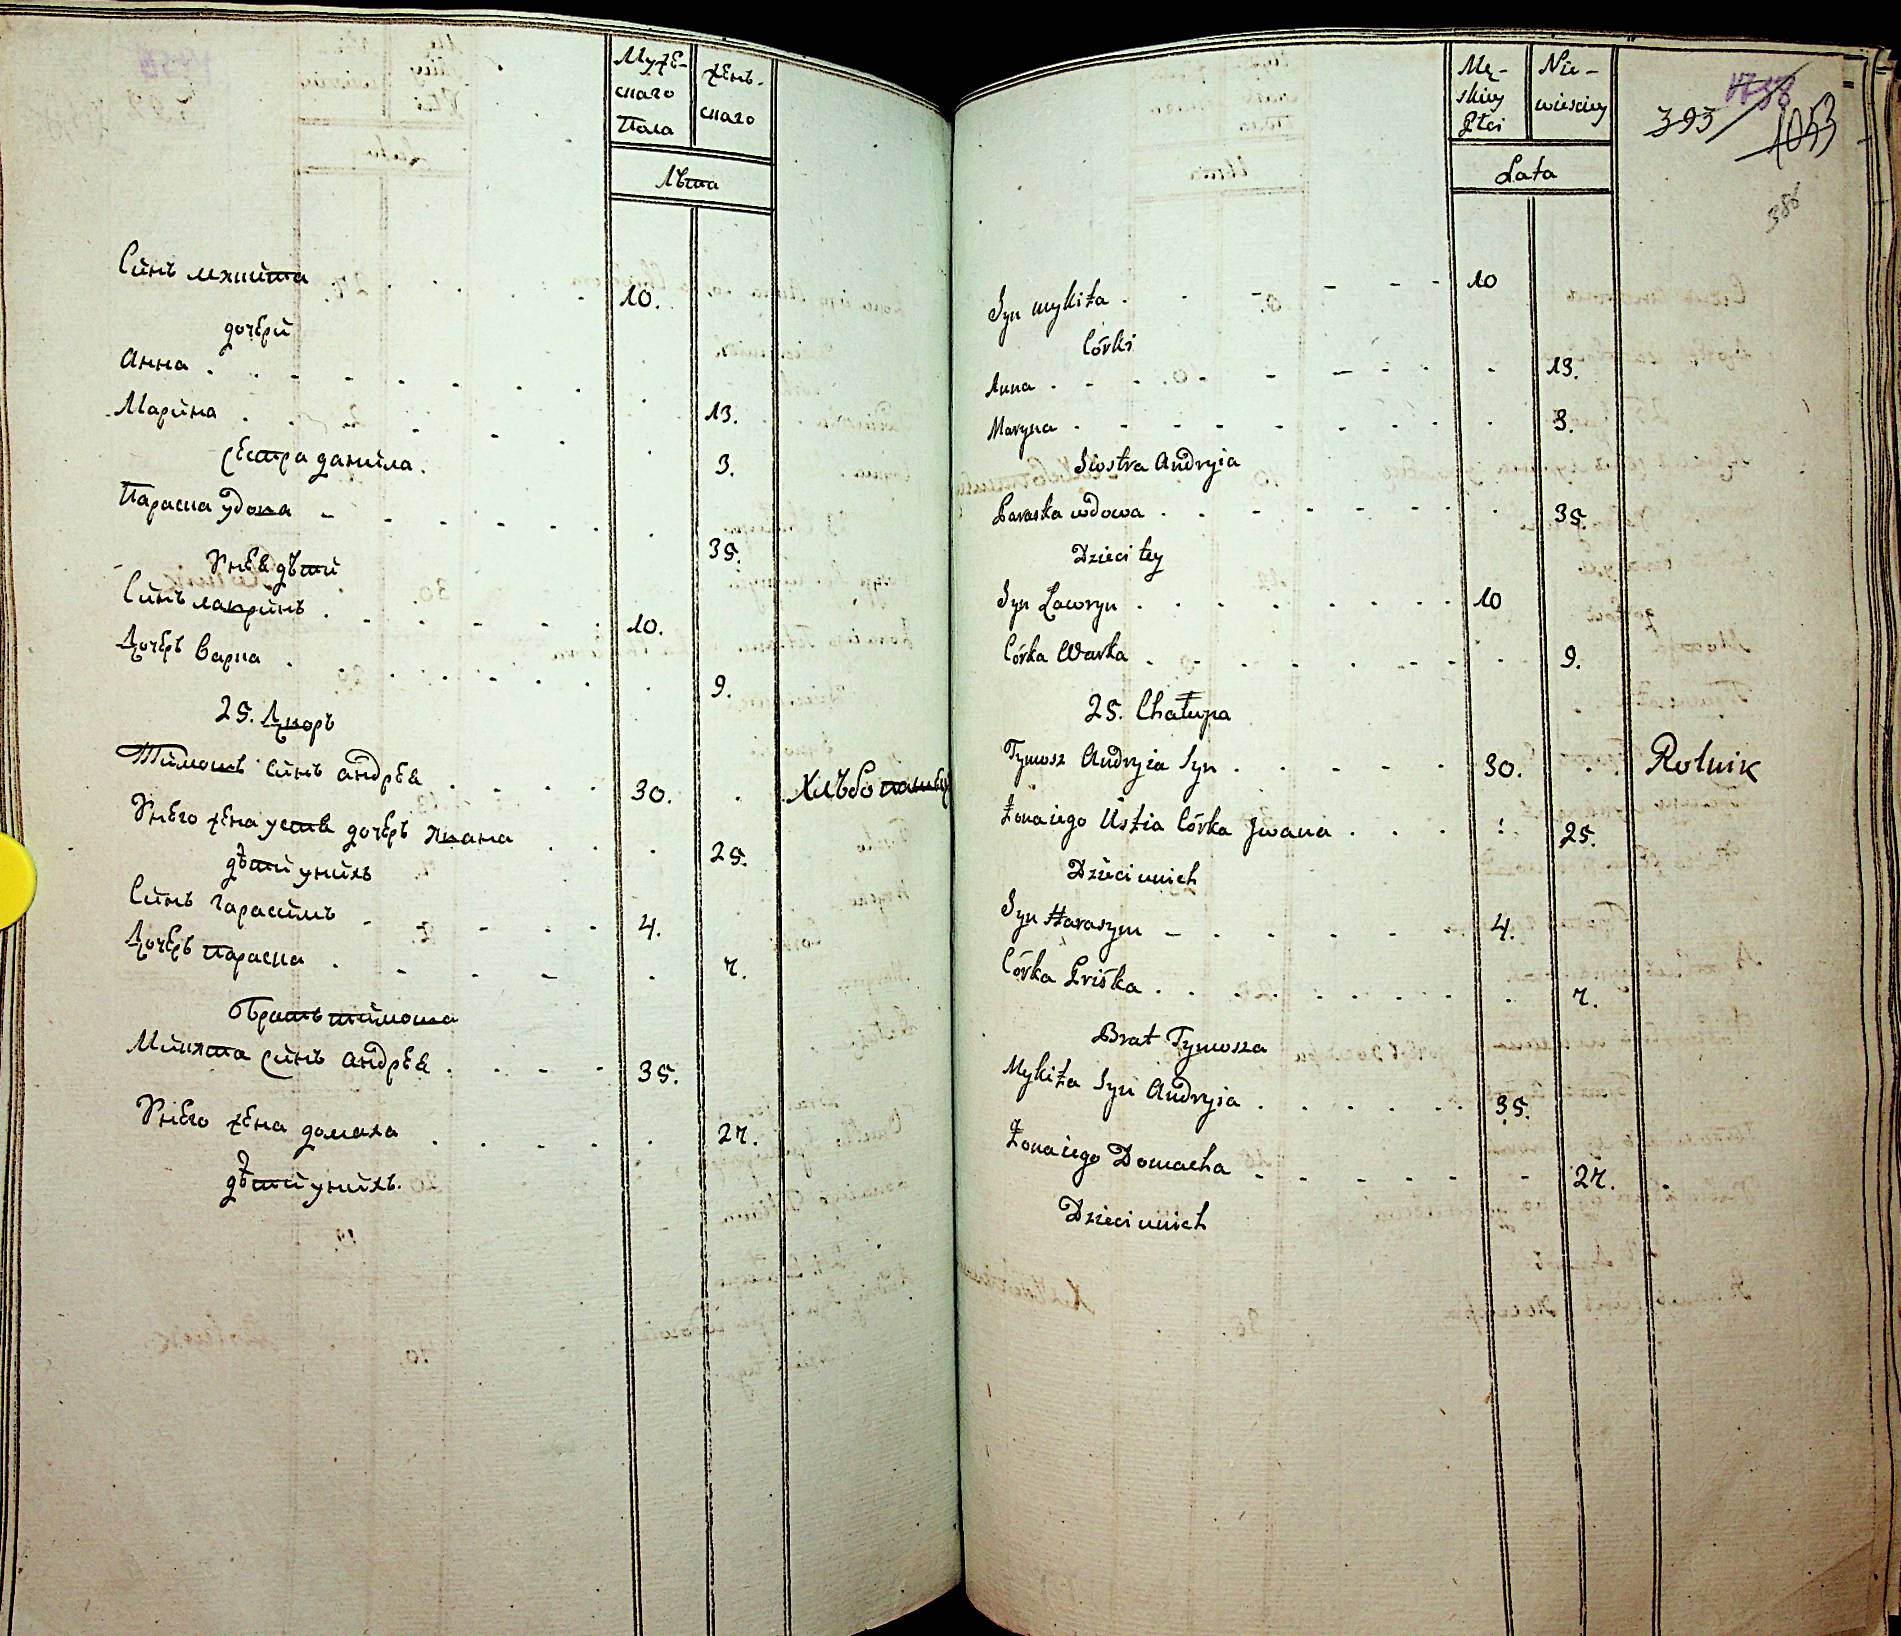 Муже-
скаго
Пола
жень-
скаго
Лѣта
Синъ микита 10.
дочери
Анна 13.
Марина 3.
сестра данила.
Параска удова 35.
Унея дѣти
Синъ лавринъ 10.
Дочеръ Варка 9.
25. Дворъ
Тимошъ синъ андрея 30. Хлѣбопашец
Унего жена устя дочерь ивана 25.
дѣти унихъ
Синъ Гарасимъ 4.
Дочеръ параска 7.
братъ тимоша
Микита синъ андрея 35.
Унего жена домаха 27.
дѣти унихъ.
Mę-
skiey
Płci
Nie-
wieściey
Lata
393
1053
386
Syn mykita 10
Córki
Anna 13.
Maryna 3.
Siostra Andryia
Paraska wdowa 35.
Dzieci tey
Syn Ławryn 10
Córka Warka 9.
25. Chałupa
Tymosz Andryia Syn 30. Rolnik
Żona iego Ustia Córka Jwana 25.
Dzieci unich
Syn Harasym 4.
Córka Priśka 7.
Brat Tymosza
Mykita Syn Andryia 35.
Żona iego Domacha 27.
Dzieci unich